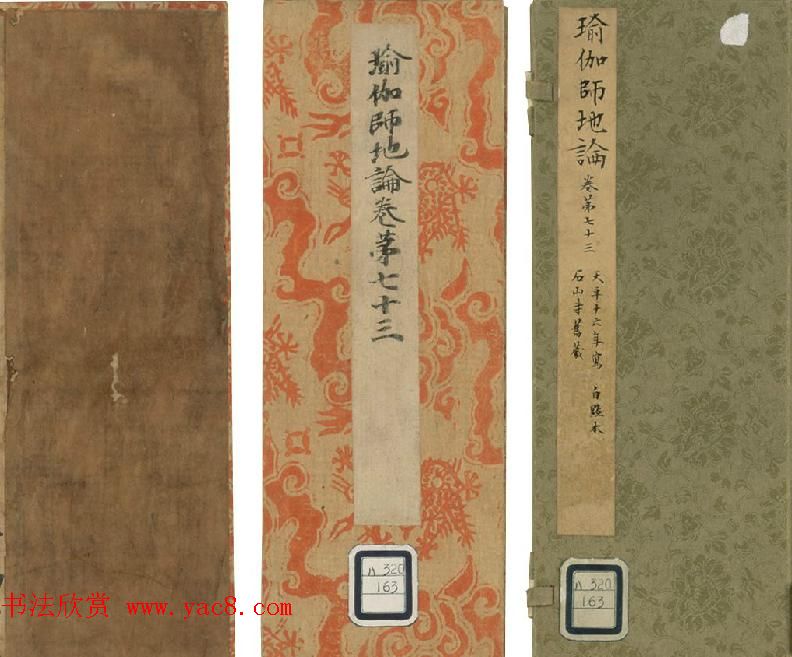 瑜伽師地論卷第七十三
ハ 320
163
瑜伽師地論 卷第七十三
天平十六年寫 白點本
石山寺舊藏
ハ 320
163
书法欣赏 www.yac8.com